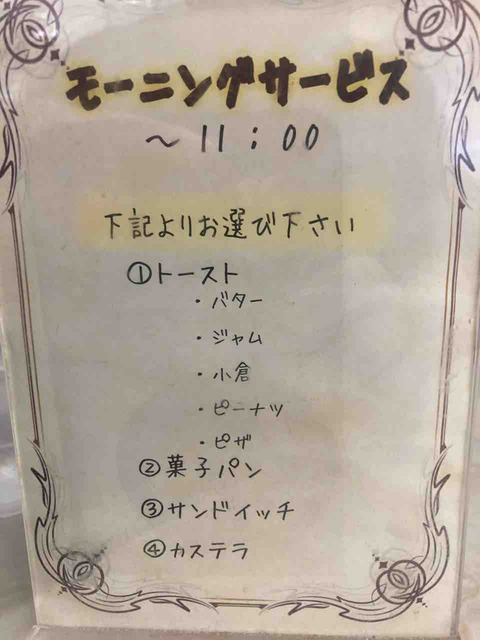 モーニングサービス
～11:00
下記よりお選び下さい
①トースト
・バター
・ジャム
・小倉
・ピーナツ
・ピザ
②菓子パン
③サンドイッチ
④カステラ